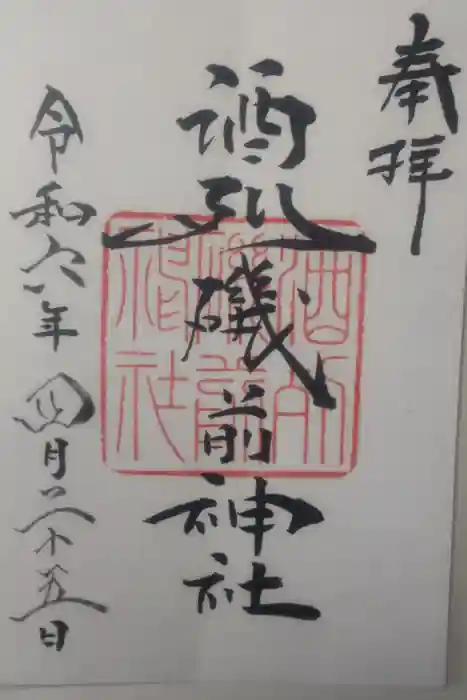 奉拝
酒列磯前神社
酒列磯前神社
令和六年四月二十五日